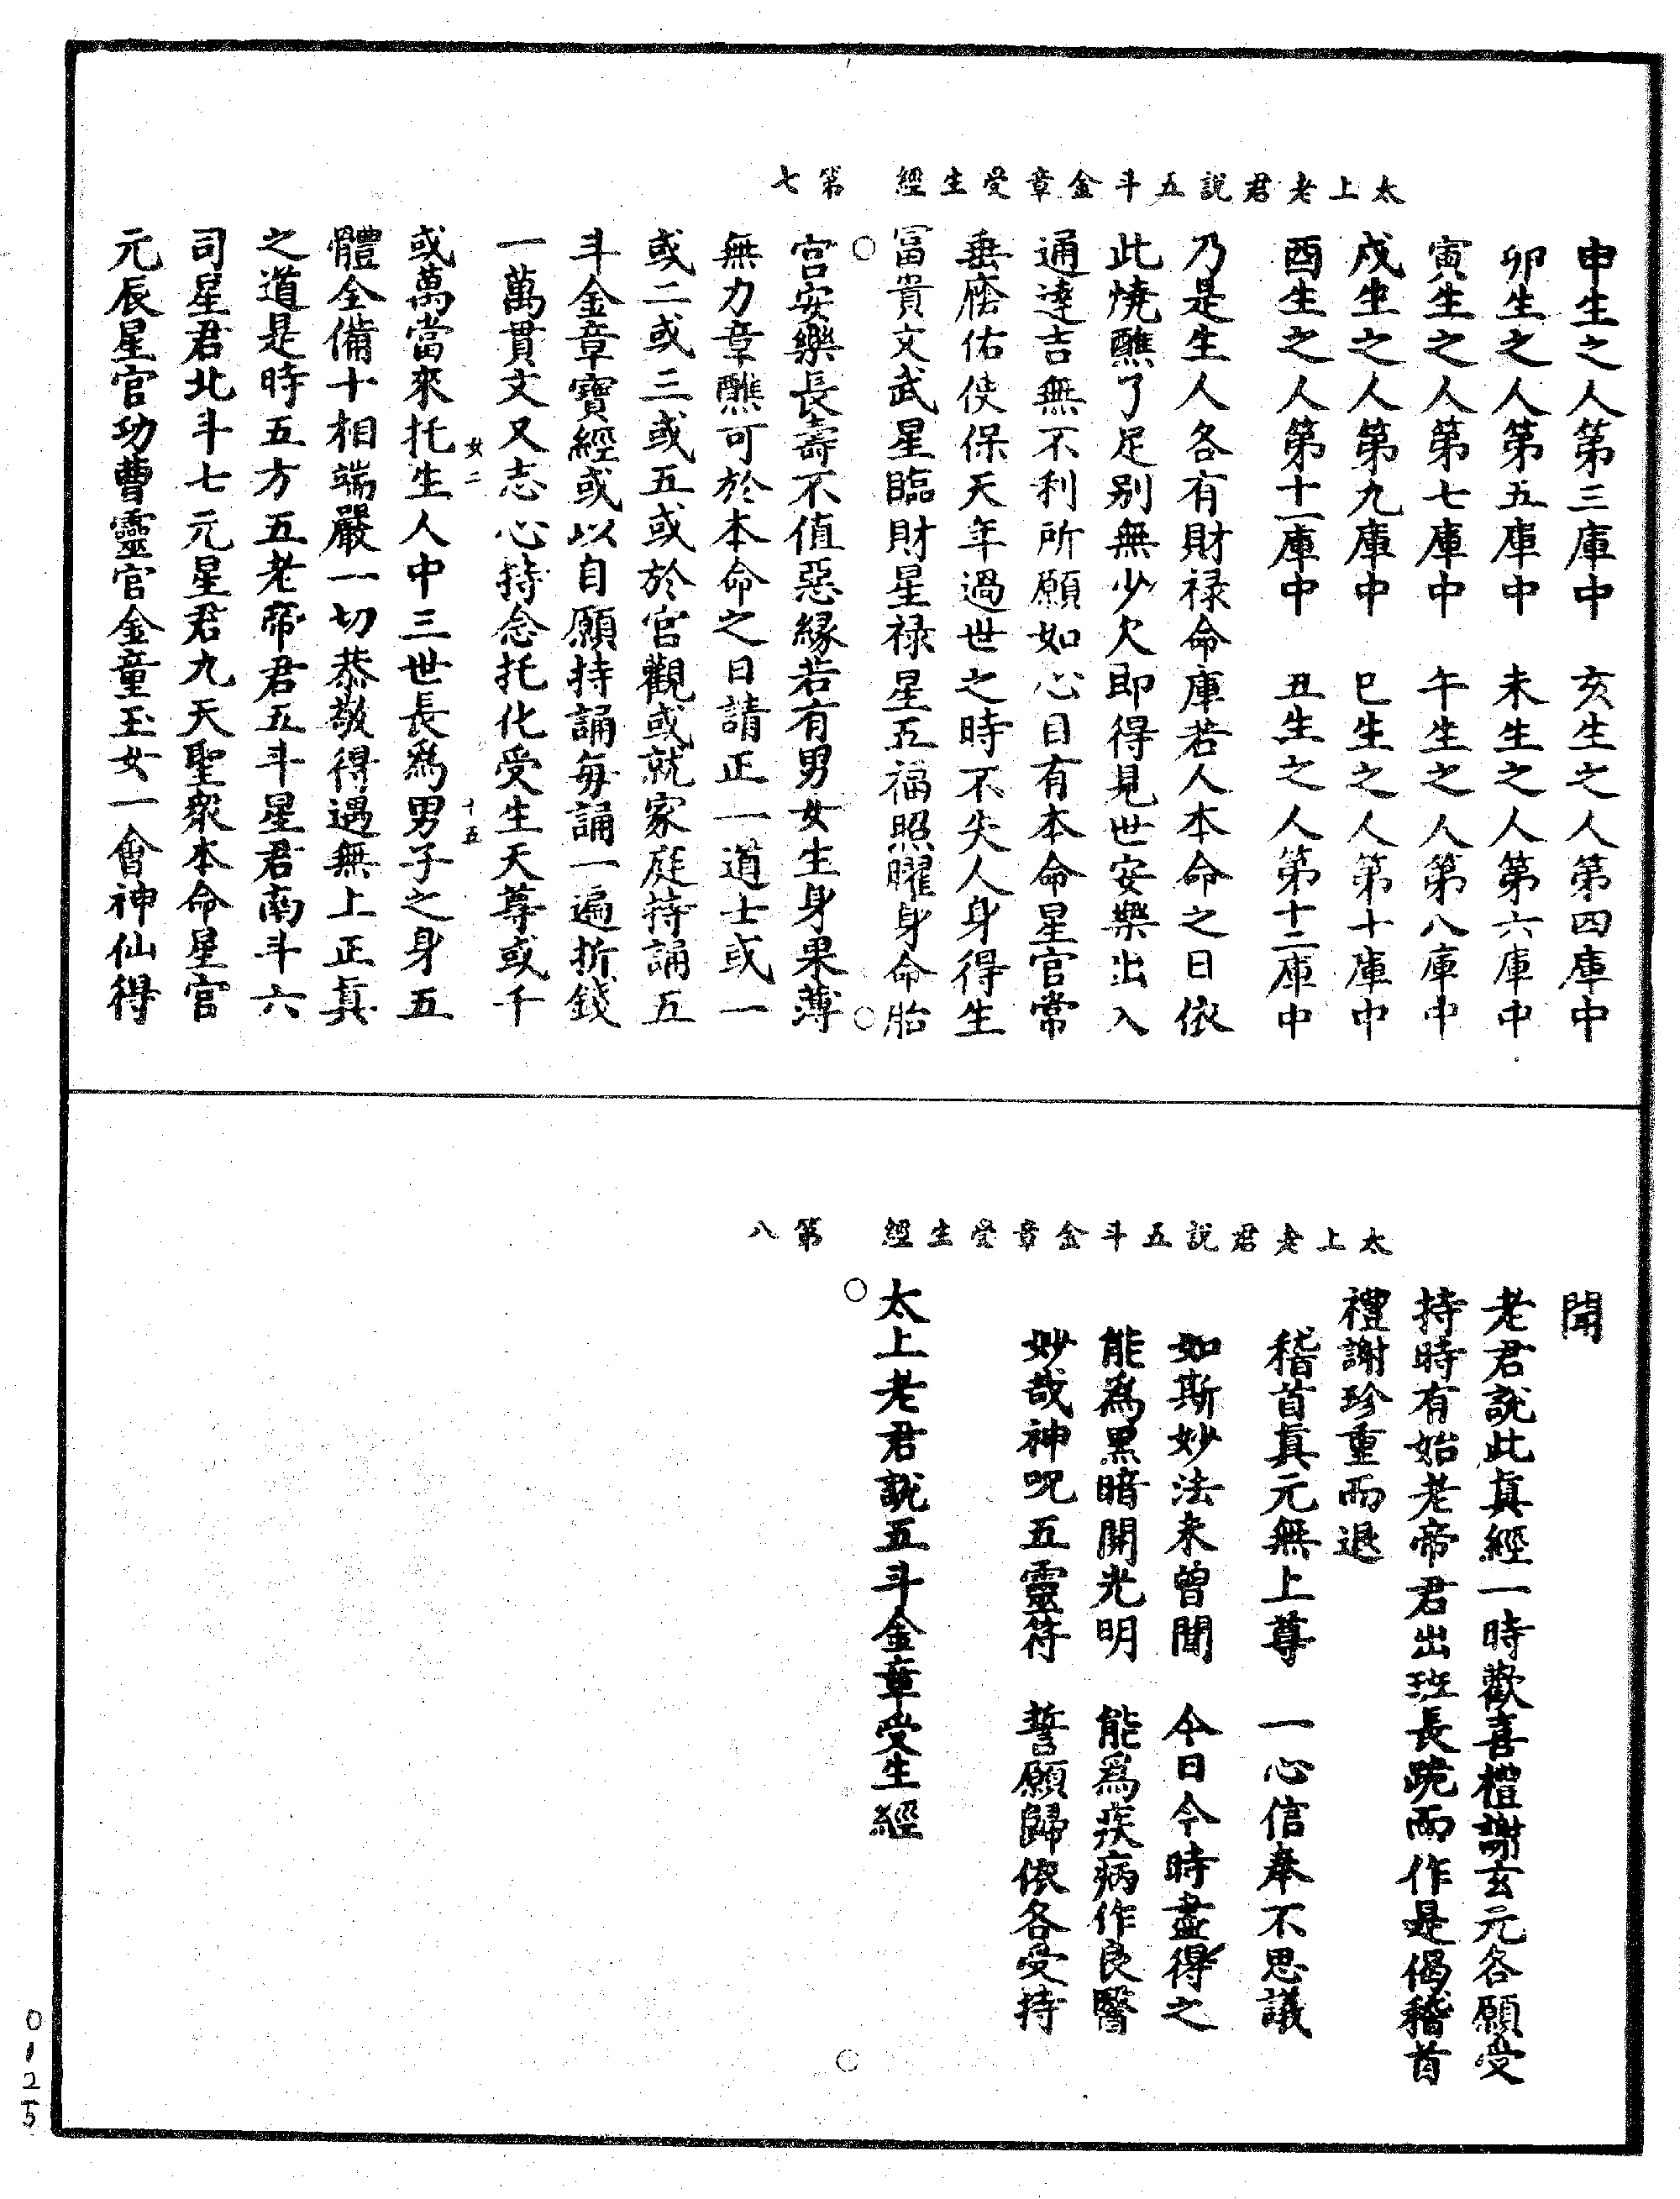 太上老君說五斗金章受生經　第七
申生之人第三庫中　亥生之人第四庫中
卯生之人第五庫中　未生之人第六庫中
寅生之人第七庫中　午生之人第八庫中
戌生之人第九庫中　巳生之人第十庫中
酉生之人第十一庫中　丑生之人第十二庫中
乃是生人各有財禄命庫若人本命之日依
此燒醮了足別無少欠即得見世安樂出入
通達吉無不利所願如心日有本命星官常
垂廕佑使保天年過世之時不失人身得生
冨貴文武星臨財星禄星五福照曜身命胎
宫安樂長壽不值惡縁若有男女生身果薄
無力章醮可於本命之日請正一道士或一
或二或三或五或於官觀或就家庭持誦五
斗金章寶經或以自願持誦每誦一遍折錢
一萬貫文又志心持念托化受生天尊或千
女二　十五
或萬當來托生人中三世長爲男子之身五
體全備十相端嚴一切恭敬得遇無上正真
之道是時五方五老帝君五斗星君南斗六
司星君北斗七元星君九天聖衆本命星官
元辰星官功曹靈官金童玉女一會神仙得
太上老君說五斗金章受生經　第八
聞
老君說此真經一時歡喜禮謝玄元各願受
持時有始老帝君出班長跪而作是偈稽首
禮謝珍重而退
稽首真元無上尊　一心信奉不思議
如斯妙法未曾聞　今日今時盡得之
能爲黒暗開光明　能爲疾病作良醫
妙哉神呪五靈符　誓願歸依各受持
太上老君說五斗金章受生經
0125